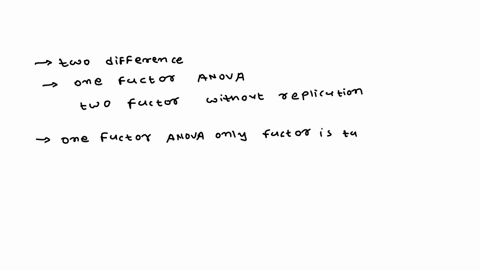 → two difference
→ one factor ANOVA
two factor without replication
→ one factor ANOVA only factor is ta